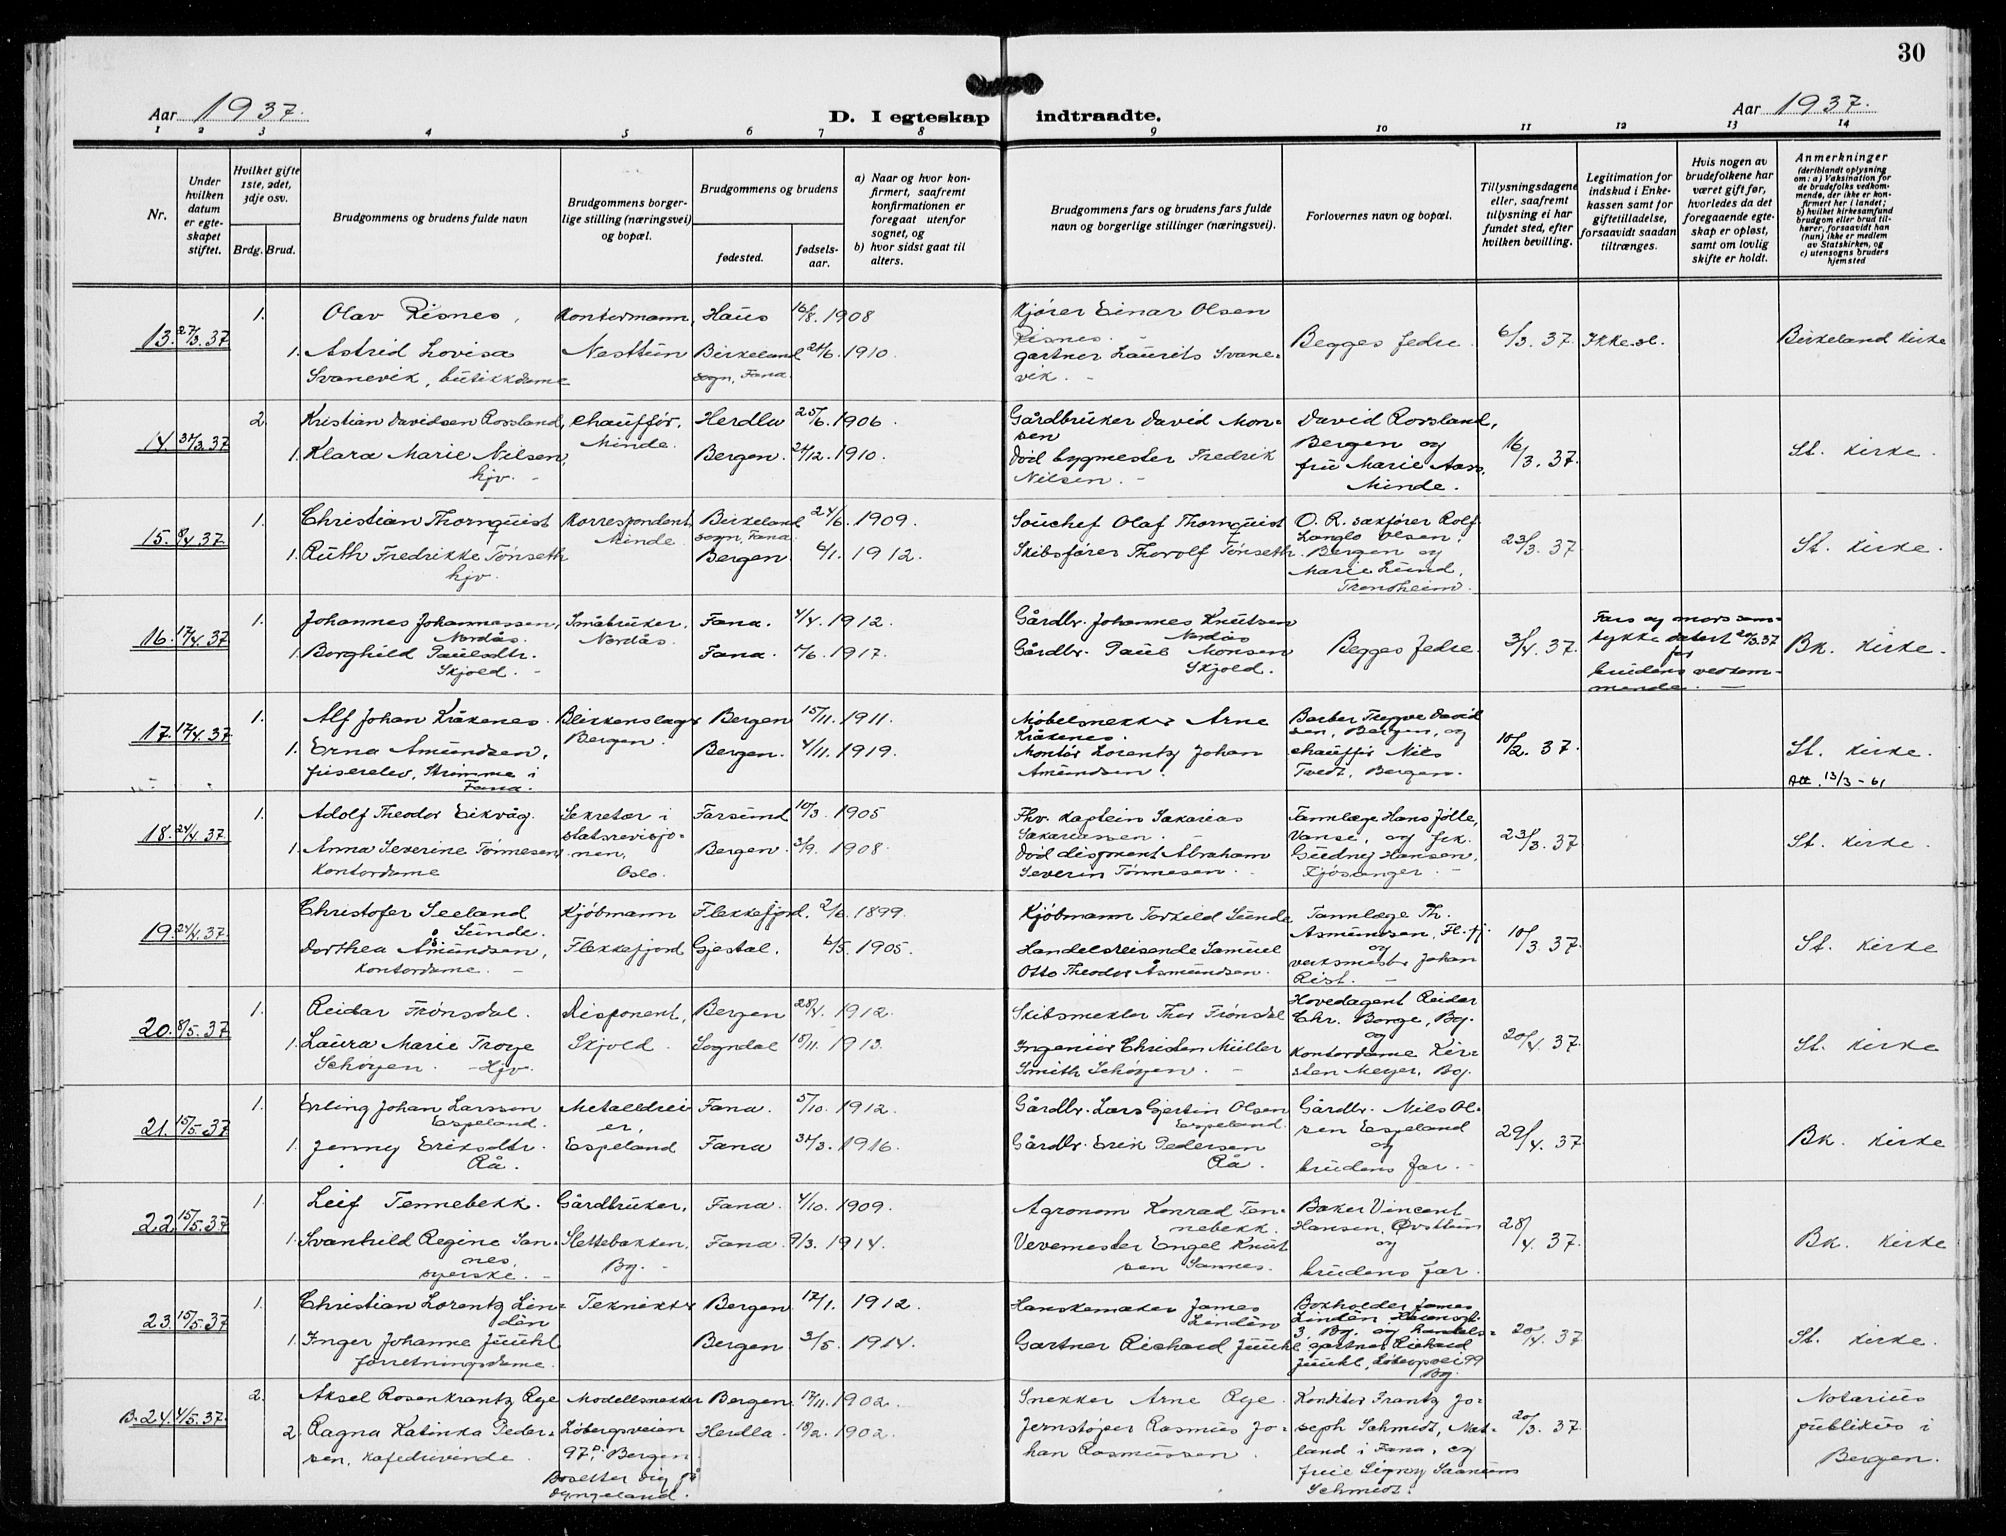 30
Aar 1937.
D. I egteskap indtraadte.
Aar 1937.
1 2 3 4 5 6 7 8 9 10 11 12 13 14
Nr.
Under hvilken datum er egteskapet stiftet.
Hvilket gifte 1ste, 2det, 3dje osv.
Brdg. Brud.
Brudgommens og brudens fulde navn
Brudgommens borgerlige stilling (næringsvei) og bopæl.
Brudgommens og brudens
fødested.
fødselsaar.
a) Naar og hvor konfirmert, saafremt konfirmationen er foregaat utenfor sognet, og
b) hvor sidst gaat til alters.
Brudgommens fars og brudens fars fulde navn og borgerlige stillinger (næringsvei).
Forlovernes navn og bopæl.
Tillysningsdagene eller, saafremt tillysning ei har fundet sted, efter hvilken bevilling.
Legitimation for indskud i Enkekassen samt for giftetilladelse, forsaavidt saadan tiltrænges.
Hvis nogen av brudefolkene har været gift før, hvorledes da det foregaaende egteskap er opløst, samt om lovlig skifte er holdt.
Anmerkninger
(deriblandt oplysning om: a) Vaksination for de brudefolks vedkommende, der ikke er konfirmert her i landet; b) hvilket kirkesamfund brudgom eller brud tilhører, forsaavidt han (hun) ikke er medlem av Statskirken, og c) utensogns bruders hjemsted
13. 27/3.37 1. Olav Risnes, Kontormann, Haus 16/8.1908 Kjører Einar Olsen Risnes. Begges fedre. 6/3.37. Ikke sl. Birkeland Kirke
1. Astrid Lovisa Svanevik, butikkdame Nesttun Birkeland sogn, Fana. 24/6.1910. gartner Laurits Svanevik.
14. 31/3.37 2. Kristian Davidsen Rossland, chauffør. Minde. Herdla 25/6.1906. Gårdbruker David Monsen David Rossland, Bergen og fru Marie Aass, Minde. 16/3.37. St. Kirke.
1. Klara Marie Nilsen, hjv. Bergen. 24/12.1910. död bygmester Fredrik Nilsen.
15. 8/4.37. 1. Christian Thornquist Korrespondent Minde. Birkeland sogn, Fana. 24/6.1909. Souchef Olaf Thornquist O. R. sakfører Rolf Langlo Olsen, Bergen og Marie Lund, Trondheim. 23/3.37 St. Kirke.
1. Ruth Fredrikke Tønseth hjv. Bergen. 6/1.1912. Skibsfører Thorolf Tønseth.
16. 17/4.37 1. Johannes Johannessen, Nordås. Småbruker, Nordås. Fana. 4/4.1912. Gårdbr. Johannes Knutsen Nordås Begges fedre. 3/4.37. Fars og mors samtykke datert 20/3.37 for brudens vedkommende. Bk. Kirke.
1. Borghild Paulsdtr. Skjold. Fana. 4/6.1917. Gårdbr. Paul Monsen Skjold.
17. 17/4.37 1. Alf Johan Kråkenes. Blikkenslager Bergen. Bergen 15/11.1911. Møbelsnekker Arne Kråkenes. Barber Trygve Davidsen, Bergen, og chauffør Nils Tvedt, Bergen. 10/2.37. St. Kirke.
1. Erna Amundsen, friserelev, Strømme i Fana. Bergen. 4/11.1919. Montør Lorentz Johan Amundsen. Att. 13/3-61
18. 24/4.37. 1. Adolf Theodor Eikvåg. Sekretær i statsrevisjonen, Oslo. Farsund 10/3 1905 Fhv. Kaptein Sakarias Sakariassen. Tannlæge Hans Jölle, Vanse, og frk. Gudny Hansen, Kjøsanger. 23/3.37 St. Kirke.
1. Anna Severine Tønnesen, Kontordame Bergen. 3/9. 1908. död disponent Abraham Severin Tønnesen.
19. 24/4.37. 1. Christofer Seeland Sunde. Kjøbmann Flekkefjord. 2/6.1899. Kjøbmann Torkild Sunde Tannlæge Th. Asmundsen, Fl.fj. og verksmester Johan Rist. 10/3.37. St. Kirke
1. Dorthea Åsmundsen, Kontordame. Flekkefjord Gjestal. 6/5.1905. Handelsreisende Samuel Otto Theodor Åsmundsen.
20. 8/5.37 1. Reidar Frønsdal. Disponent, Bergen 28/4.1912. Skibsmekler Thor Frønsdal Hovedagent Reidar Chr. Borge, Bg. og kontordame Kirsten Meyer, Bg. 20/4.37. St. Kirke
1. Laura Marie Troye Schøyen. Hjv. Skjold. Sogndal 18/11.1913. Ingeniør Christen Müller Smith Schøyen.
21. 15/5.37 1. Erling Johan Larssen Espeland. Metalldreier, Fana. 5/10.1912. Gårdbr. Lars Gjertin Olsen Espeland. Gårdbr. Nils Olsen Espeland og brudens far. 29/4.37 Bk. Kirke
1. Jenny Eriksdtr. Rå. Espeland Fana 31/3.1916. Gårdbr. Erik Pedersen Rå.
22. 15/5.37 1. Leif Tennebekk. Gårdbruker, Fana. 4/10.1909. Agronom Konrad Tennebekk. Baker Vincent Hansen, Øvsttun og brudens far. 28/4.37. Bk. Kirke
1. Svanhild Regine Sannes, syerske. Slettebakken, Bg. Fana. 9/3.1914. Vevemester Engel Knutsen Sannes.
23. 15/5.37 1. Christian Lorentz Lindèn Tekniker Bergen. 17/1. 1912. Hanskemaker James Lindèn Bokholder James Lindèn, 3, Bg. og handelsgartner Richard Juuhl, Løbergsvei 99 Bg. 20/4.37 St. Kirke.
1. Inger Johanne Juuhl forretningsdame. Bergen. 3/5.1914. Gartner Richard Juuhl
B. 24. 4/5.37. 2. Aksel Rosenkrantz Rye Modellsnekker Bergen. 17/11.1902. Snekker Arne Rye. Konditor Frantz Joseph Schmidt, Natland i Fana, og frue Signy Saanum Schmidt. 20/3.37. Notarius publikus i Bergen.
2. Ragna Katinka Pedersen, Kafedrivende. Løbergsveien 97D, Bergen. Bosetter sig på Dyngeland. Herdla. 18/2.1902. Jernstøper Rasmus Johan Rasmussen.